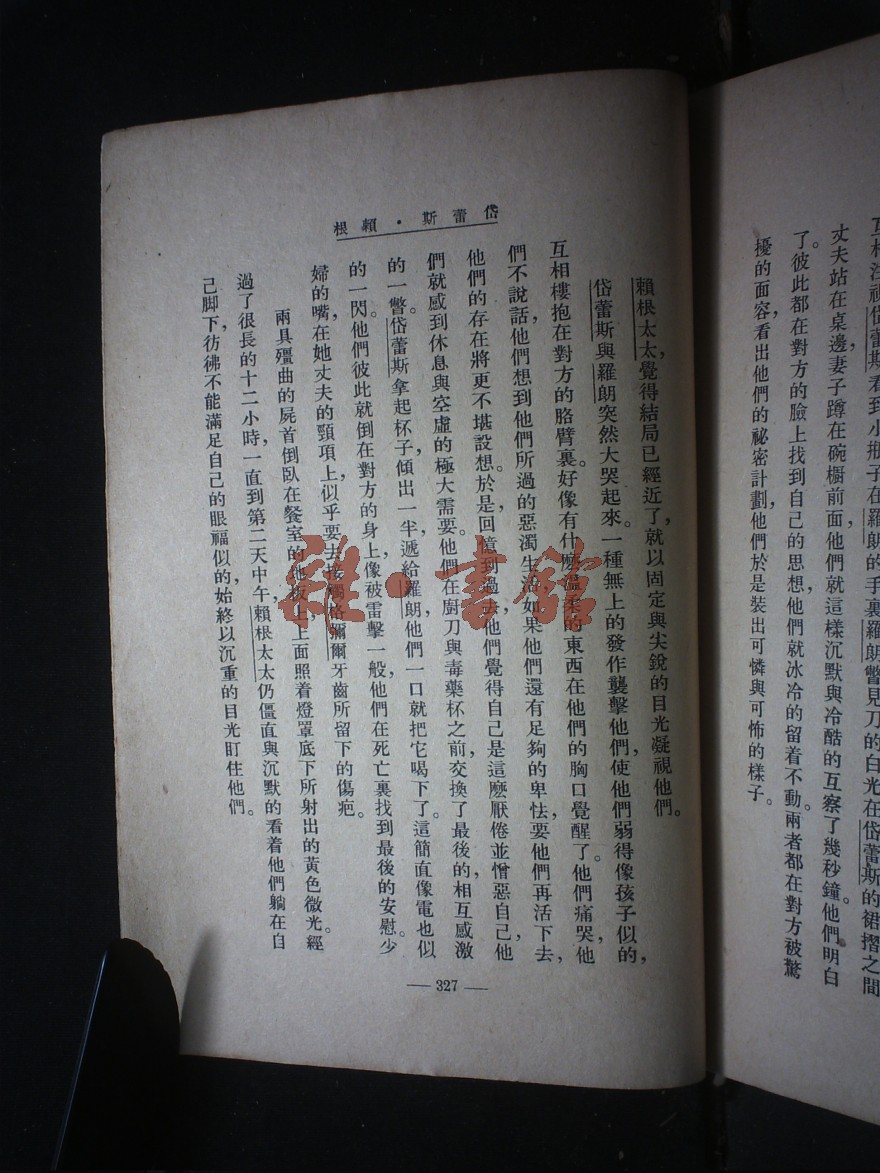 互相注視岱蕾斯看到小瓶子在羅朗的手裏羅朗瞥見刀的白光在岱蕾斯的裙摺之間
丈夫站在桌邊，妻子蹲在碗櫥前面，他們就這樣沉默與冷酷的互察了幾秒鐘。他們明白
了。彼此都在對方的臉上找到自己的思想，他們就冰冷的留着不動。兩者都在對方被驚
擾的面容，看出他們的祕密計劃，他們於是裝出可憐與可怖的樣子。
岱蕾斯·賴根
賴根太太，覺得結局已經近了，就以固定與尖銳的目光凝視他們。
岱蕾斯與羅朗突然大哭起來。一種無上的發作襲擊他們，使他們弱得像孩子似的，
互相摟抱在對方的胳臂裏。好像有什麼溫柔的東西在他們的胸口覺醒了。他們痛哭，他
們不說話，他們想到他們所過的惡濁生活，如果他們還有足夠的卑怯，要他們再活下去，
他們的存在將更不堪設想。於是，回憶到過去，他們覺得自己是這麼厭倦並憎惡自己，他
們就感到休息與空虛的極大需要。他們在廚刀與毒藥杯之前，交換了最後的，相互感激
的一瞥。岱蕾斯拿起杯子，傾出一半，遞給羅朗，他們一口就把它喝下了。這簡直像電也似
的一閃。他們彼此就倒在對方的身上，像被雷擊一般，他們在死亡裏找到最後的安慰。少
婦的嘴，在她丈夫的頸項上，似乎要去接觸格彌爾牙齒所留下的傷疤。
兩具殭曲的屍首倒臥在餐室的地板上，上面照着燈罩底下所射出的黃色微光。經
過了很長的十二小時，一直到第二天中午，賴根太太仍僵直與沉默的看着他們躺在自
己脚下，彷彿不能滿足自己的眼福似的，始終以沉重的目光盯住他們。
— 327 —
雜·書館